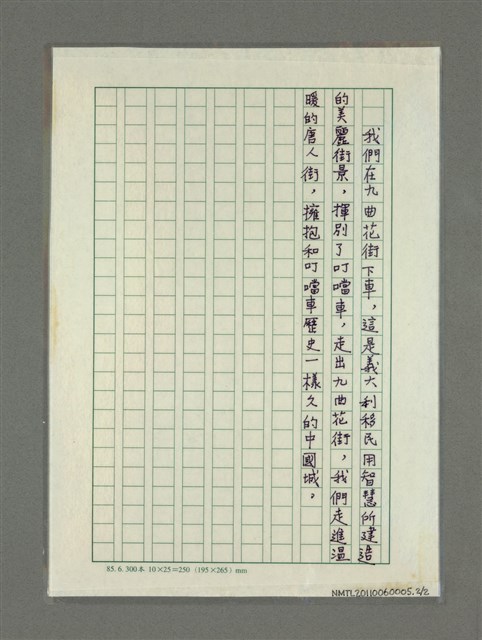 我們在九曲花街下車，這是義大利移民用智慧所建造
的美麗街景，揮別了叮噹車，走出九曲花街，我們走進溫
暖的唐人街，擁抱和叮噹車歷史一樣久的中國城。
85. 6. 300本 10×25=250（195×265）mm
NMTL20110060005.2/2